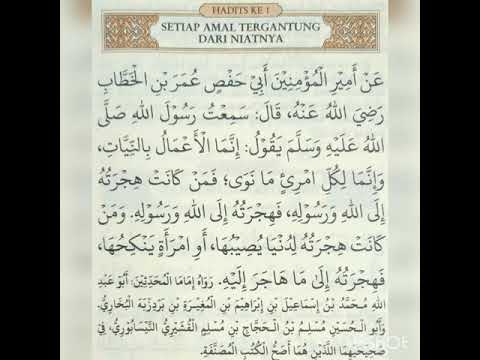 HADITS KE 1
SETIAP AMAL TERGANTUNG
DARI NIATNYA
عَنْ أَمِيْرِ الْمُؤْمِنِيْنَ أَبِيْ حَفْصٍ عُمَرَ بْنِ الْخَطَّابِ
رَضِيَ اللهُ عَنْهُ، قَالَ: سَمِعْتُ رَسُوْلَ اللهِ صَلَّى
اللهُ عَلَيْهِ وَسَلَّمَ يَقُوْلُ: إِنَّمَا الْأَعْمَالُ بِالنِّيَّاتِ،
وَإِنَّمَا لِكُلِّ امْرِئٍ مَا نَوَى؛ فَمَنْ كَانَتْ هِجْرَتُهُ
إِلَى اللهِ وَرَسُوْلِهِ، فَهِجْرَتُهُ إِلَى اللهِ وَرَسُوْلِهِ. وَمَنْ
كَانَتْ هِجْرَتُهُ لِدُنْيَا يُصِيْبُهَا، أَوِ امْرَأَةٍ يَنْكِحُهَا،
فَهِجْرَتُهُ إِلَىٰ مَا هَاجَرَ إِلَيْهِ. رَوَاهُ إِمَامَا الْمُحَدِّثِيْنَ: أَبُوْ عَبْدِ
اللهِ مُحَمَّدُ بْنُ إِسْمَاعِيْلَ بْنِ إِبْرَاهِيْمَ بْنِ الْمُغِيْرَةِ بْنِ بَرْدِزْبَهْ الْبُخَارِيُّ.
وَأَبُو الْحُسَيْنِ مُسْلِمُ بْنُ الْحَجَّاجِ بْنِ مُسْلِمٍ الْقُشَيْرِيُّ النَّيْسَابُوْرِيُّ، فِيْ
صَحِيْحَيْهِمَا اللَّذَيْنِ هُمَا أَصَحُّ الْكُتُبِ الْمُصَنَّفَةِ.